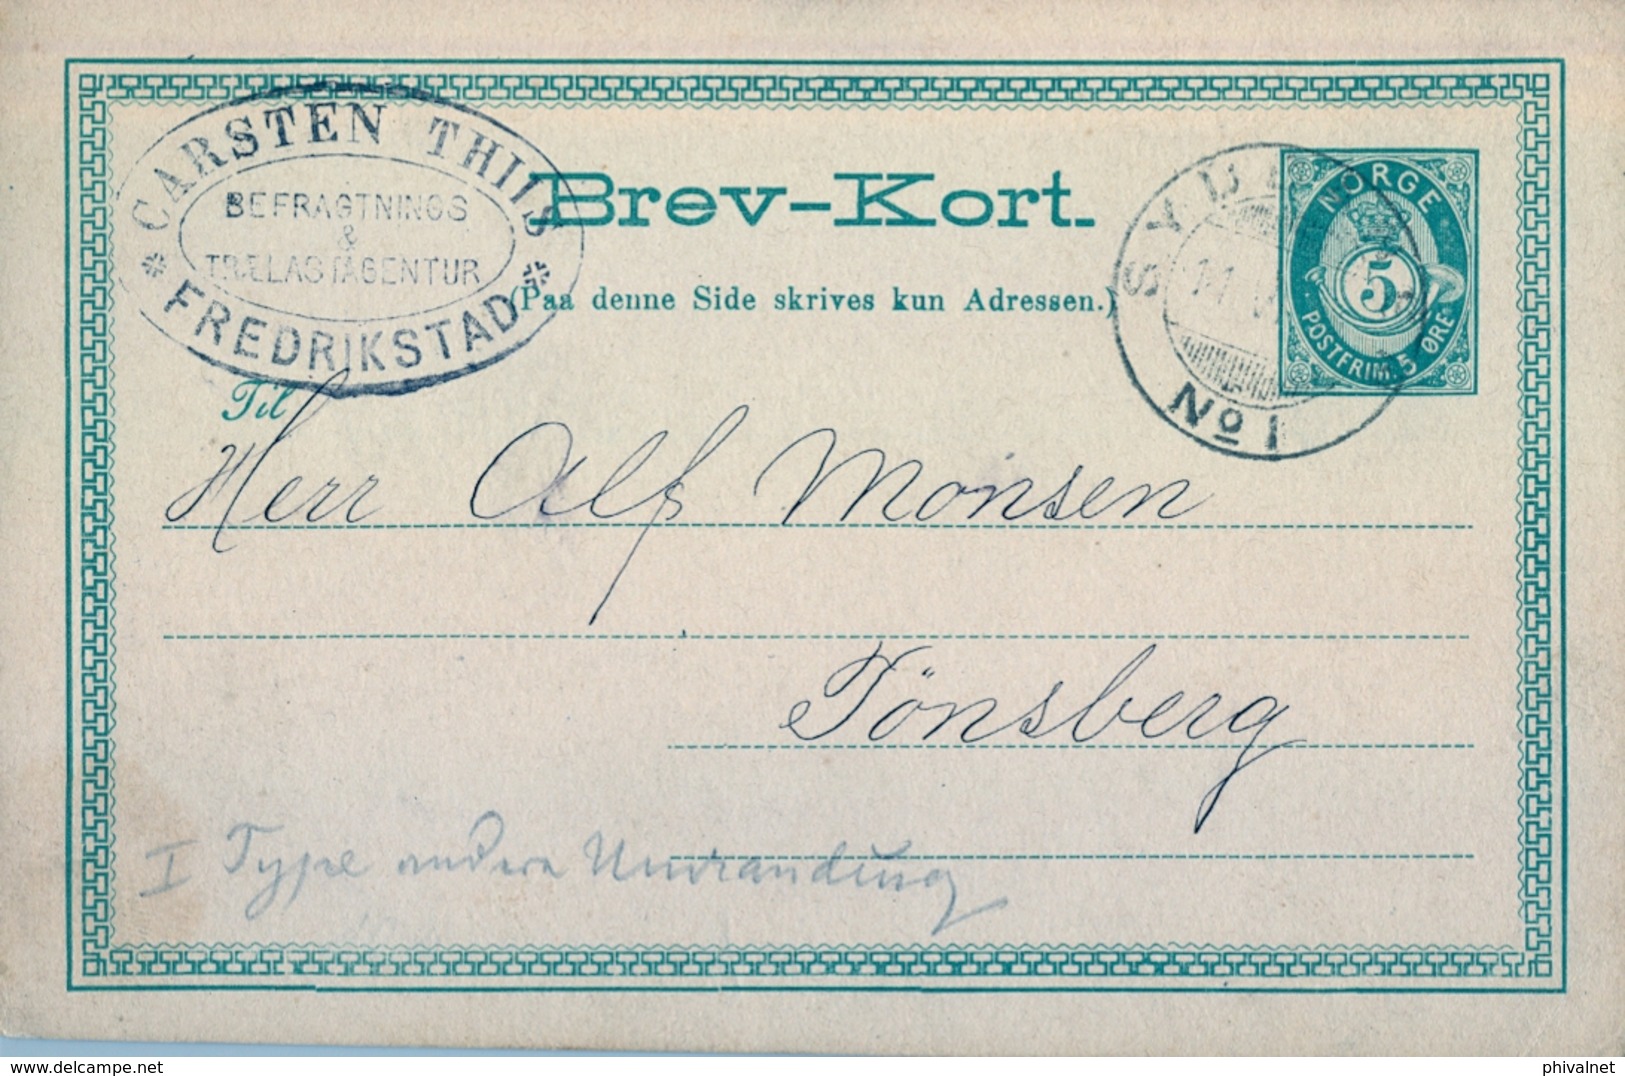 CARSTEN THIIS
BEFRAGTNINGS
&
TRÆLASTAGENTUR
* FREDRIKSTAD *
Brev-Kort.
(Paa denne Side skrives kun Adressen.)
NORGE
5
POSTFRIM. 5 ØRE
No 1
Til
Herr Alf Monsen
Tönsberg
I Type andere Umrandung
delcampe.net
phivalnet